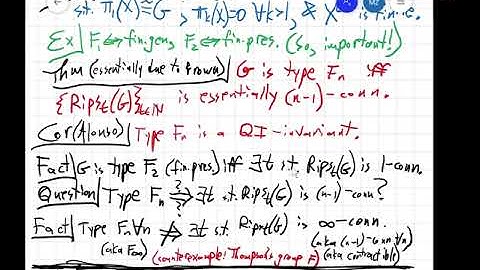 s.t. π₁(X)≅G, πₖ(X)=0 ∀k>1, & X is fin
Ex | F₁⇔fin.gen, F₂⇔fin.pres. (so, important!)
Thm (essentially due to Brown) | G is type Fₙ iff
{Ripsₜ(G)}ₜ∈ℕ is essentially (n-1)-conn.
Cor (Alonso) | Type Fₙ is a QI-invariant.
Fact | G is type F₂ (fin.pres.) iff ∃t s.t. Ripsₜ(G) is 1-conn.
Question | Type Fₙ ⇒ ∃t s.t. Ripsₜ(G) is (n-1)-conn?
Fact | Type Fₙ ∀n ⇏ ∃t s.t. Ripsₜ(G) is ∞-conn.
(aka F∞) (counterexample: Thompson's group F) (aka (n-1)-conn ∀n)
(aka contractible)